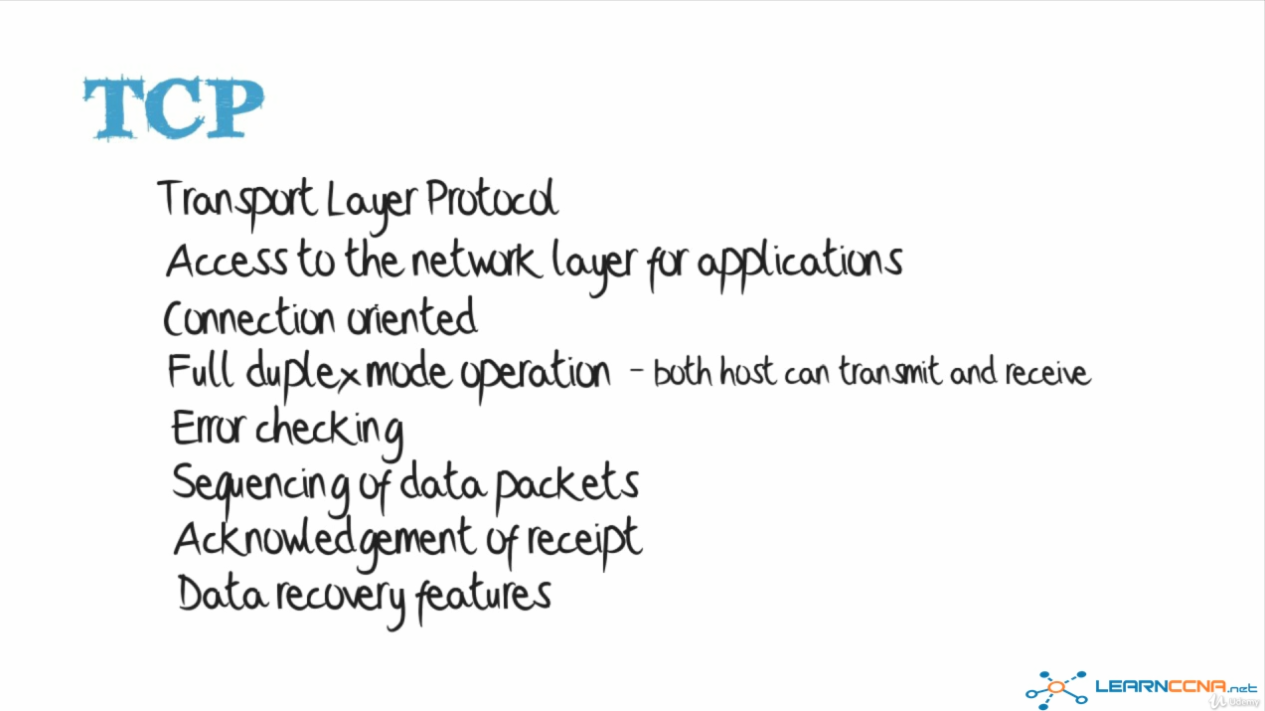 TCP
Transport Layer Protocol
Access to the network layer for applications
Connection oriented
Full duplex mode operation - both host can transmit and receive
Error checking
Sequencing of data packets
Acknowledgement of receipt
Data recovery features
LEARNCCNA.net
Udemy